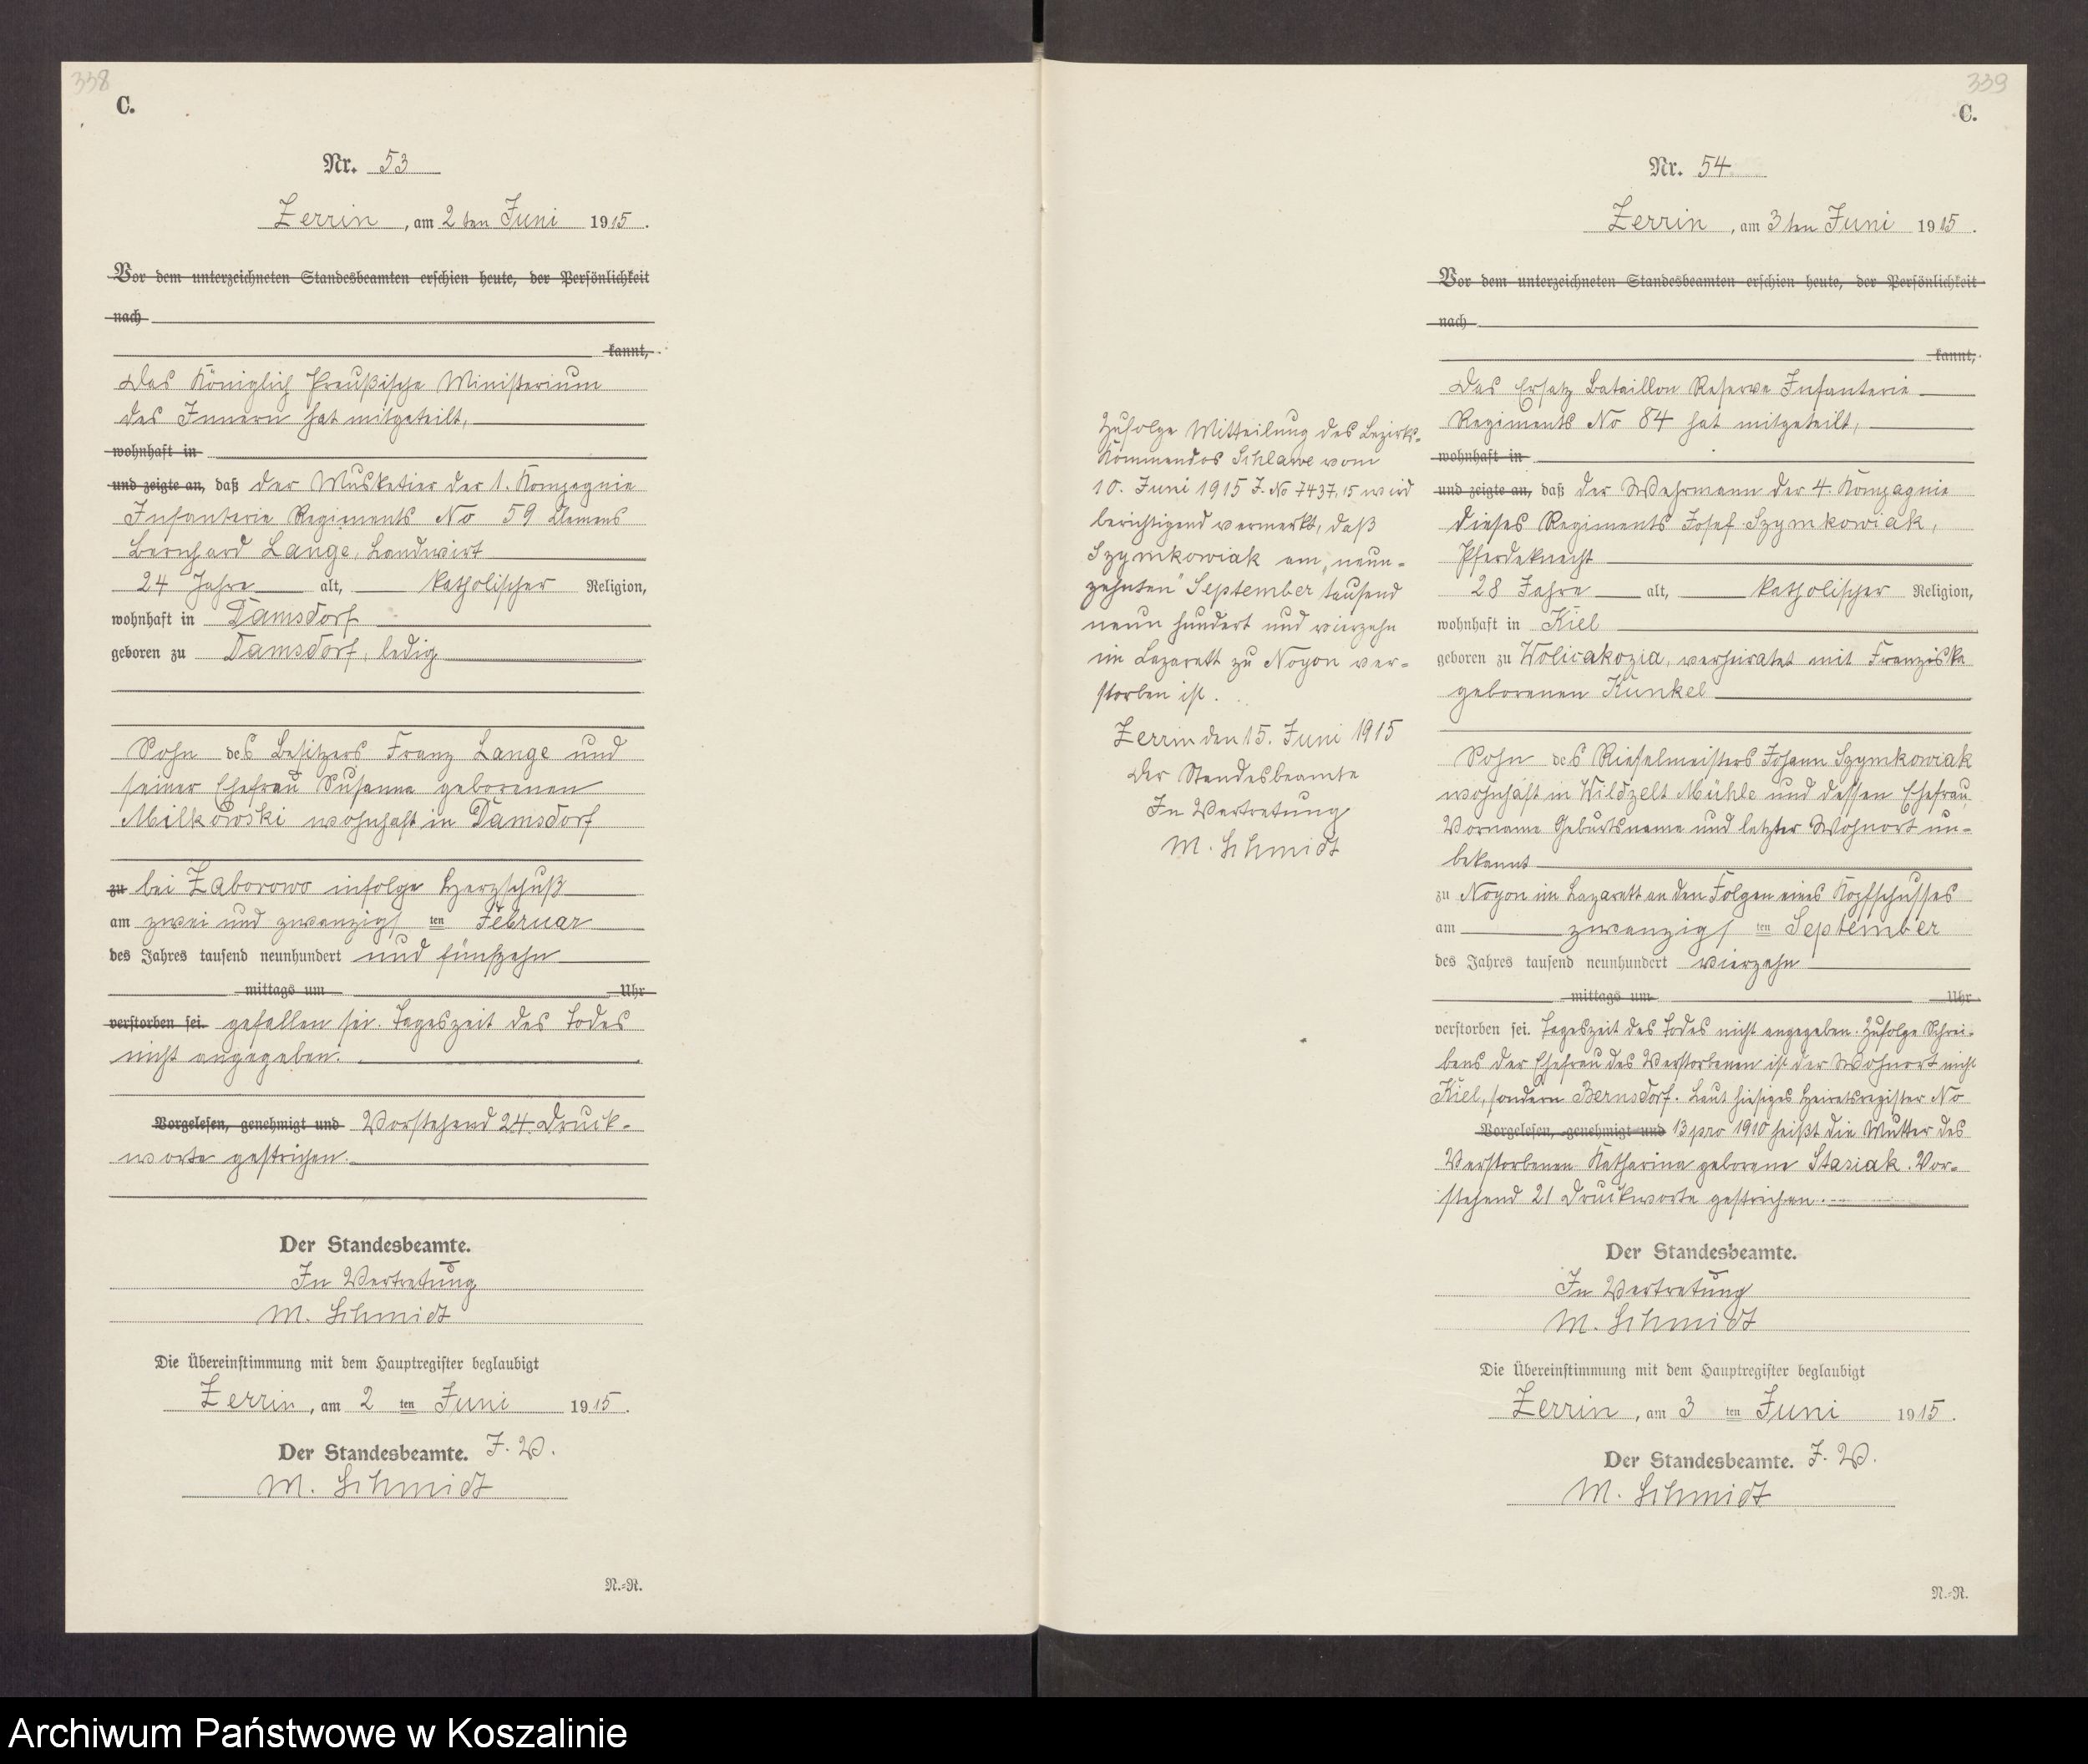 338
C.
Nr. 53
Zerrin, am 2ten Juni 1915.
Vor dem unterzeichneten Standesbeamten erschien heute, der Persönlichkeit
nach
kannt,
Das Königlich Preußische Ministerium
des Innern hat mitgeteilt,
wohnhaft in
und zeigte an, daß der Musketier der 1. Kompagnie
Infanterie Regiments No 59 Klemens
Bernhard Lange, Landwirt
24 Jahre alt, katholischer Religion,
wohnhaft in Damsdorf
geboren zu Damsdorf, ledig
Sohn des Besitzers Franz Lange und
seiner Ehefrau Susanna geborenen
Milkowski wohnhaft in Damsdorf
zu bei Zaborowo infolge Herzschuß
am zwei und zwanzigsten Februar
des Jahres tausend neunhundert und fünfzehn
mittags um Uhr
verstorben sei. gefallen sei. Tageszeit des Todes
nicht angegeben.
Vorgelesen, genehmigt und Vorstehend 24 Druck-
worte gestrichen.
Der Standesbeamte.
In Vertretung
M. Schmidt
Die Übereinstimmung mit dem Hauptregister beglaubigt
Zerrin, am 2 ten Juni 1915.
Der Standesbeamte. J. V.
M. Schmidt
N.-R.
339
C.
Nr. 54
Zerrin, am 3ten Juni 1915.
Vor dem unterzeichneten Standesbeamten erschien heute, der Persönlichkeit
nach
kannt,
Das Ersatz Bataillon Reserve Infanterie
Regiments No 84 hat mitgeteilt,
wohnhaft in
und zeigte an, daß der Wehrmann der 4. Kompagnie
dieses Regiments Josef Szymkowiak,
Pferdeknecht
28 Jahre alt, katholischer Religion,
wohnhaft in Kiel
geboren zu Wolicakozia, verheiratet mit Franziska
geborenen Kunkel
Sohn des Rieselmeisters Johann Szymkowiak
wohnhaft in Wildzelt Mühle und dessen Ehefrau,
Vorname Geburtsname und letzter Wohnort un-
bekannt
zu Noyon im Lazarett an den Folgen eines Kopfschusses
am zwanzigsten September
des Jahres tausend neunhundert vierzehn
mittags um Uhr
verstorben sei. Tageszeit des Todes nicht angegeben. Zufolge Schrei-
bens der Ehefrau des Verstorbenen ist der Wohnort nicht
Kiel, sondern Bernsdorf. Laut hiesiges Heiratsregister No
Vorgelesen, genehmigt und 13 pro 1910 heißt die Mutter des
Verstorbenen Katharina geborene Stasiak. Vor-
stehend 21 Druckworte gestrichen.
Der Standesbeamte.
In Vertretung
M. Schmidt
Die Übereinstimmung mit dem Hauptregister beglaubigt
Zerrin, am 3 ten Juni 1915.
Der Standesbeamte. J. V.
M. Schmidt
N.-R.
Zufolge Mitteilung des Bezirks-
Kommandos Schlawe vom
10. Juni 1915 J. No 7437,15 wird
berichtigend vermerkt, daß
Szymkowiak am „neun-
zehnten" September tausend
neun hundert und vierzehn
im Lazarett zu Noyon ver-
storben ist.
Zerrin den 15. Juni 1915
Der Standesbeamte
In Vertretung
M. Schmidt
Archiwum Państwowe w Koszalinie